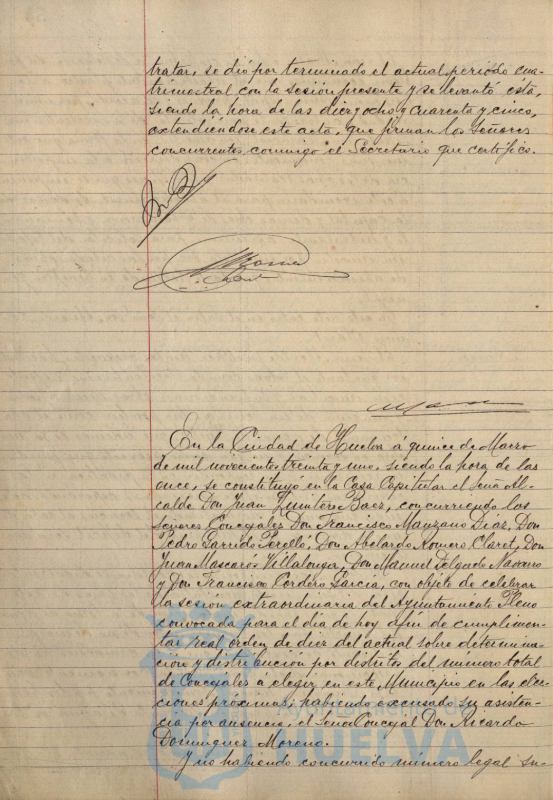 tratar, se dió por terminado el actual periodo cua-
trimestral con la sesión presente y se levantó ésta,
siendo la hora de las diez y ocho y cuarenta y cinco,
extendiéndose este acta, que firman los señores
concurrentes conmigo el Secretario que certifico.
En la Ciudad de Huelva á quince de Marzo
de mil novecientos treinta y uno, siendo la hora de las
once, se constituyó en la Casa Capitular el señor Al-
calde Don Juan Quintero Baez, concurriendo los
señores Concejales Don Francisco Manzano Diaz, Don
Pedro Garrido Perelló, Don Abelardo Romero Claret, Don
Juan Mascarós Villalonga, Don Manuel Delgado Navarro
y Don Francisco Cordero García, con objeto de celebrar
la sesión extraordinaria del Ayuntamiento Pleno
convocada para el dia de hoy á fin de cumplimen-
tar real orden de diez del actual sobre determina-
ción y distribución por distritos del numero total
de Concejales á elegir en este Municipio en las elec-
ciones próximas; habiendo excusado su asisten-
cia por ausencia, el señor Concejal Don Ricardo
Dominguez Moreno.
HUELVA
Y no habiendo concurrido número legal su-